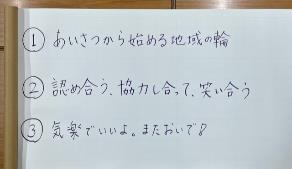 ① あいさつから始める地域の輪
② 認め合う、協力し合って、笑い合う
③ 気楽でいいよ。またおいで!